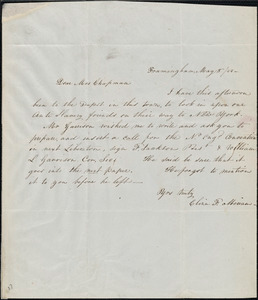 Framingham, May 8/42.
Dear Mrs Chapman
I have this afternoon
been to the depot in this town, to look in upon our
anti slavery friends on their way to New York
Mr Garrison wished me to write and ask you to
prepare, and insert a call for the N. Eng. Convention
in next Liberator, sign F. Jackson Pres. & William
L. Garrison Cor. Sec. He said be sure that it
goes into the next paper. He forgot to mention
it to you before he left.
Yrs truly
Eliza F.